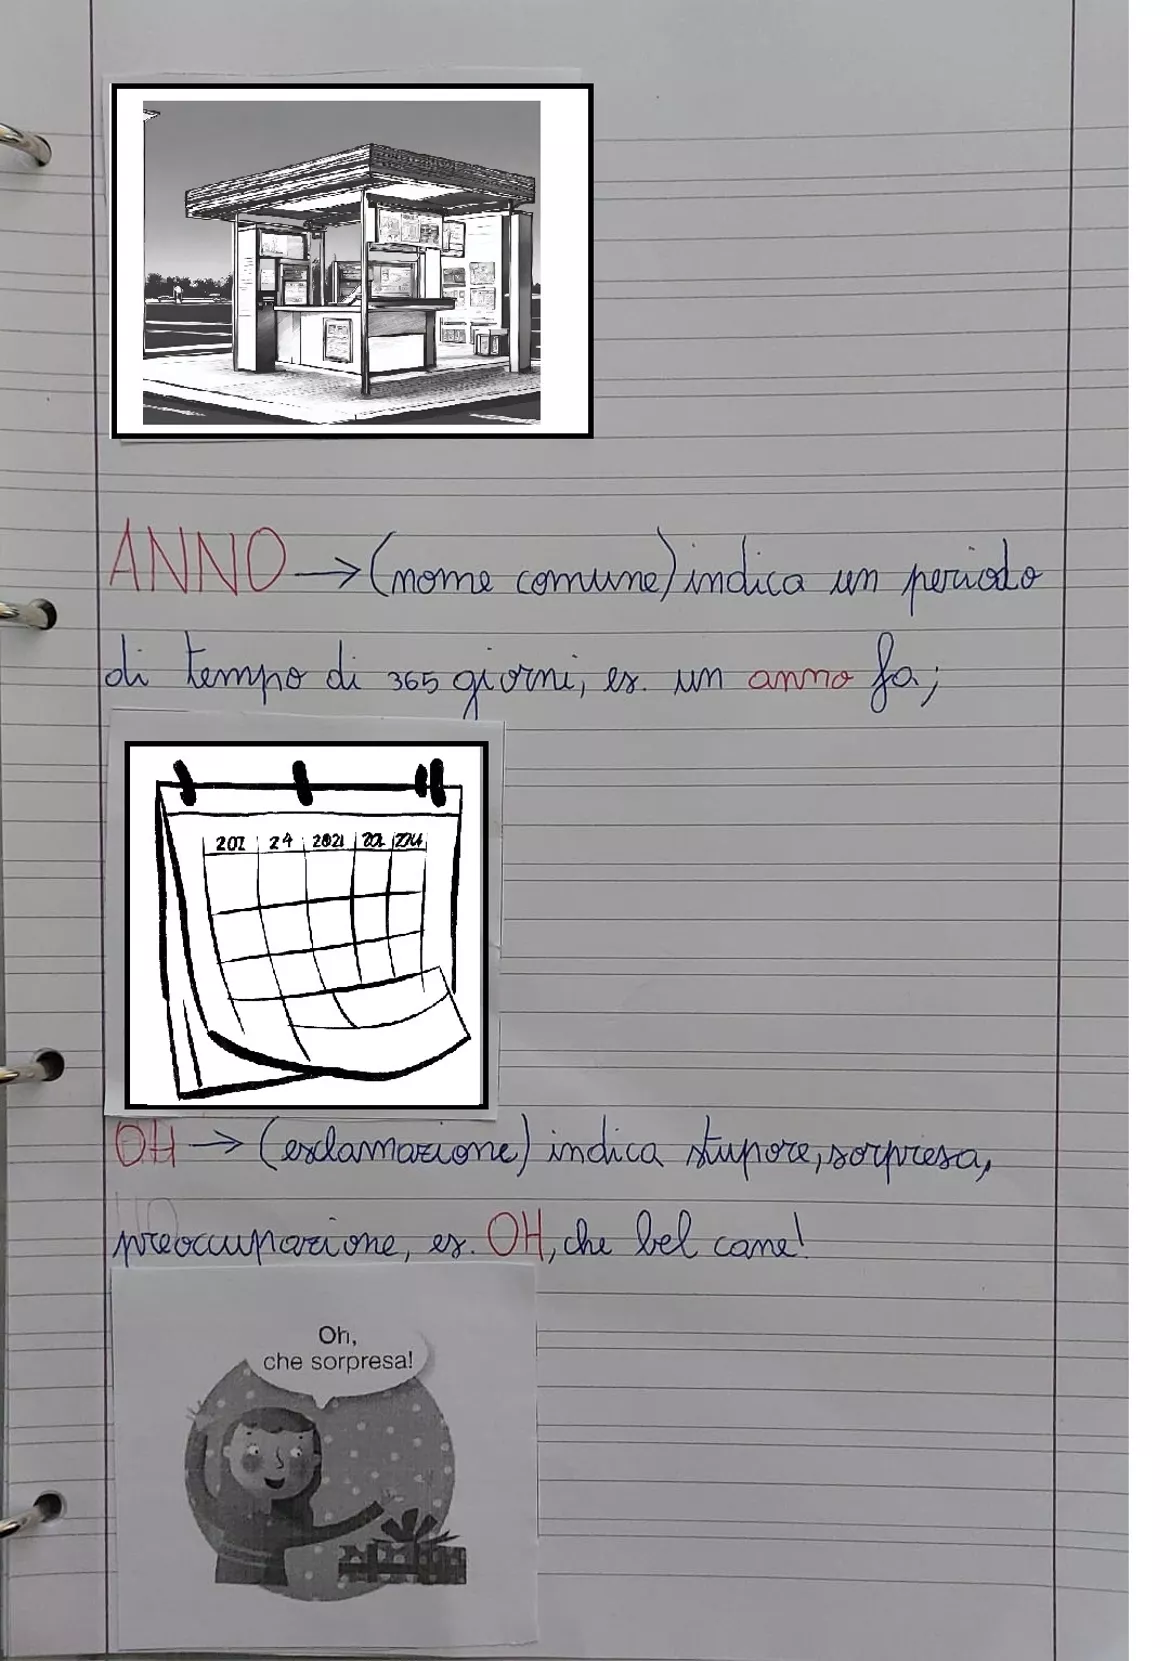 ANNO → (nome comune) indica un periodo
di tempo di 365 giorni, es. un anno fa;
202 24 2021 202 2024
OH → (esclamazione) indica stupore, sorpresa,
preoccupazione, es. OH, che bel cane!
Oh,
che sorpresa!